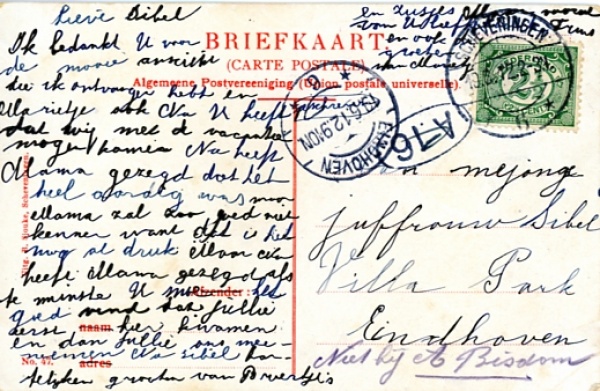 Lieve Sibel
Ik bedankt U voor
de mooie ansicht
die ik ontvangen hebt en
Marietje ook Na U heeft geschreven
dat wij met de vacantie
mogen komen Na heeft
Mama gezegd dat het
heel aardig was maar
Mama zal zoo goed niet
kennen want dat is het
nog al druk Maar
heeft Mama gezegd als
te minste U het
goed vind dat jullie
eerst hier kwamen
en dan jullie ons mee-
nemen Na Sibel har-
telijken groeten van Broertje
en zusjes
van U
en ook
groeten
van
BRIEFKAART
(CARTE POSTALE)
Algemeene Postvereeniging (Union postale universelle).
SCHEVENINGEN
NEDERLAND
2½
CENT
EINDHOVEN
A76
Uitg. Scheveningen.
Afzender:
naam
No. 47. adres
mejonge
juffrouw Sibel
Villa Park
Eindhoven
Niet bij A Bisdom